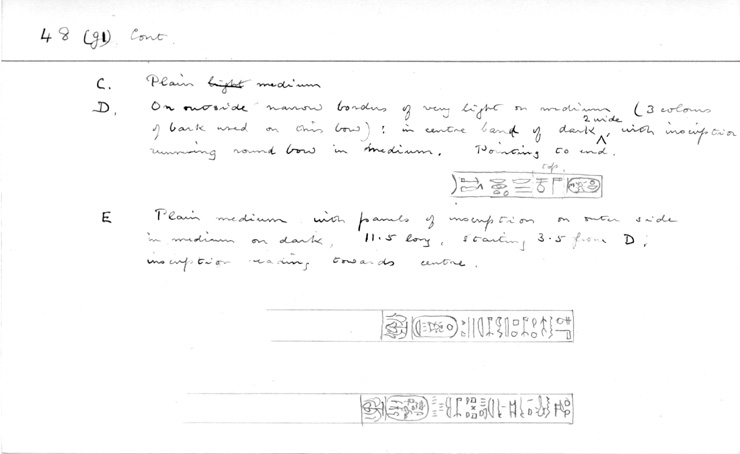 48 (g1) Cont.
C. Plain light medium
D. On outside narrow borders of very light on medium (3 colours
of bark used on this bow) : in centre band of dark 2 wide, with inscription
running round bow in medium. Pointing to end.
top.
E Plain medium with panels of inscription on outer side
in medium on dark, 11.5 long, starting 3.5 from D ;
inscription reading towards centre.